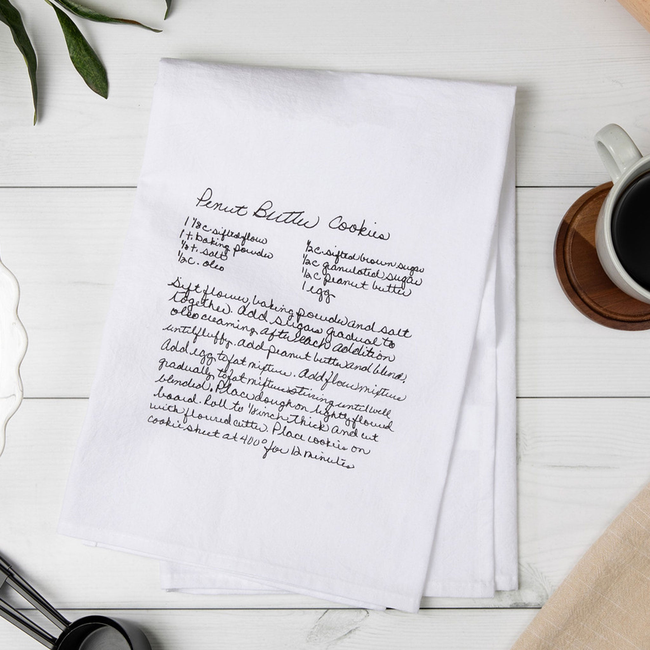 Penut Butter Cookies
1 1/2 c sifted flour
1 t. baking powder
1/2 t. salt
1/2 c. oleo
1/2 c sifted brown sugar
1/2 c granulated sugar
1/2 c peanut butter
1 egg
Sift flour, baking powder and salt
together. Add sugars gradual to
oleo creaming after each addition
until fluffy. Add peanut butter and blend.
Add egg to fat mixture. Add flour mixture
gradually to fat mixture stirring until well
blended. Place dough on lightly floured
board. Roll to 1/8 inch thick and cut
with floured cutter. Place cookies on
cookie sheet at 400° for 12 minutes